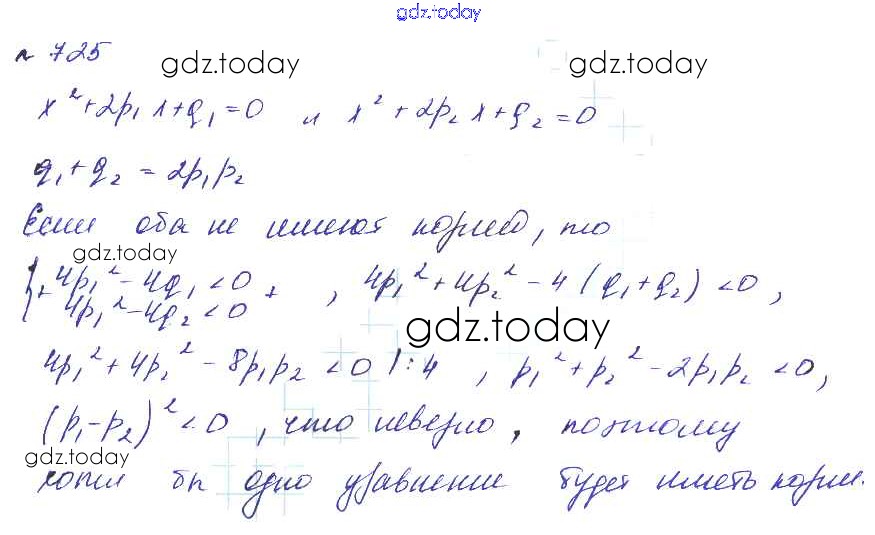 gdz.today
№ 725
gdz.today gdz.today
x² + 2p₁x + q₁ = 0 и x² + 2p₂x + q₂ = 0
q₁ + q₂ = 2p₁p₂
Если оба не имеют корней, то
gdz.today
{+ 4p₁² - 4q₁ < 0 + , 4p₁² + 4p₂² - 4(q₁ + q₂) < 0,
4p₁² - 4q₂ < 0
gdz.today
4p₁² + 4p₂² - 8p₁p₂ < 0 | : 4 , p₁² + p₂² - 2p₁p₂ < 0,
(p₁ - p₂)² < 0, что неверно, поэтому
gdz.today
хотя бы одно уравнение будет иметь корни.